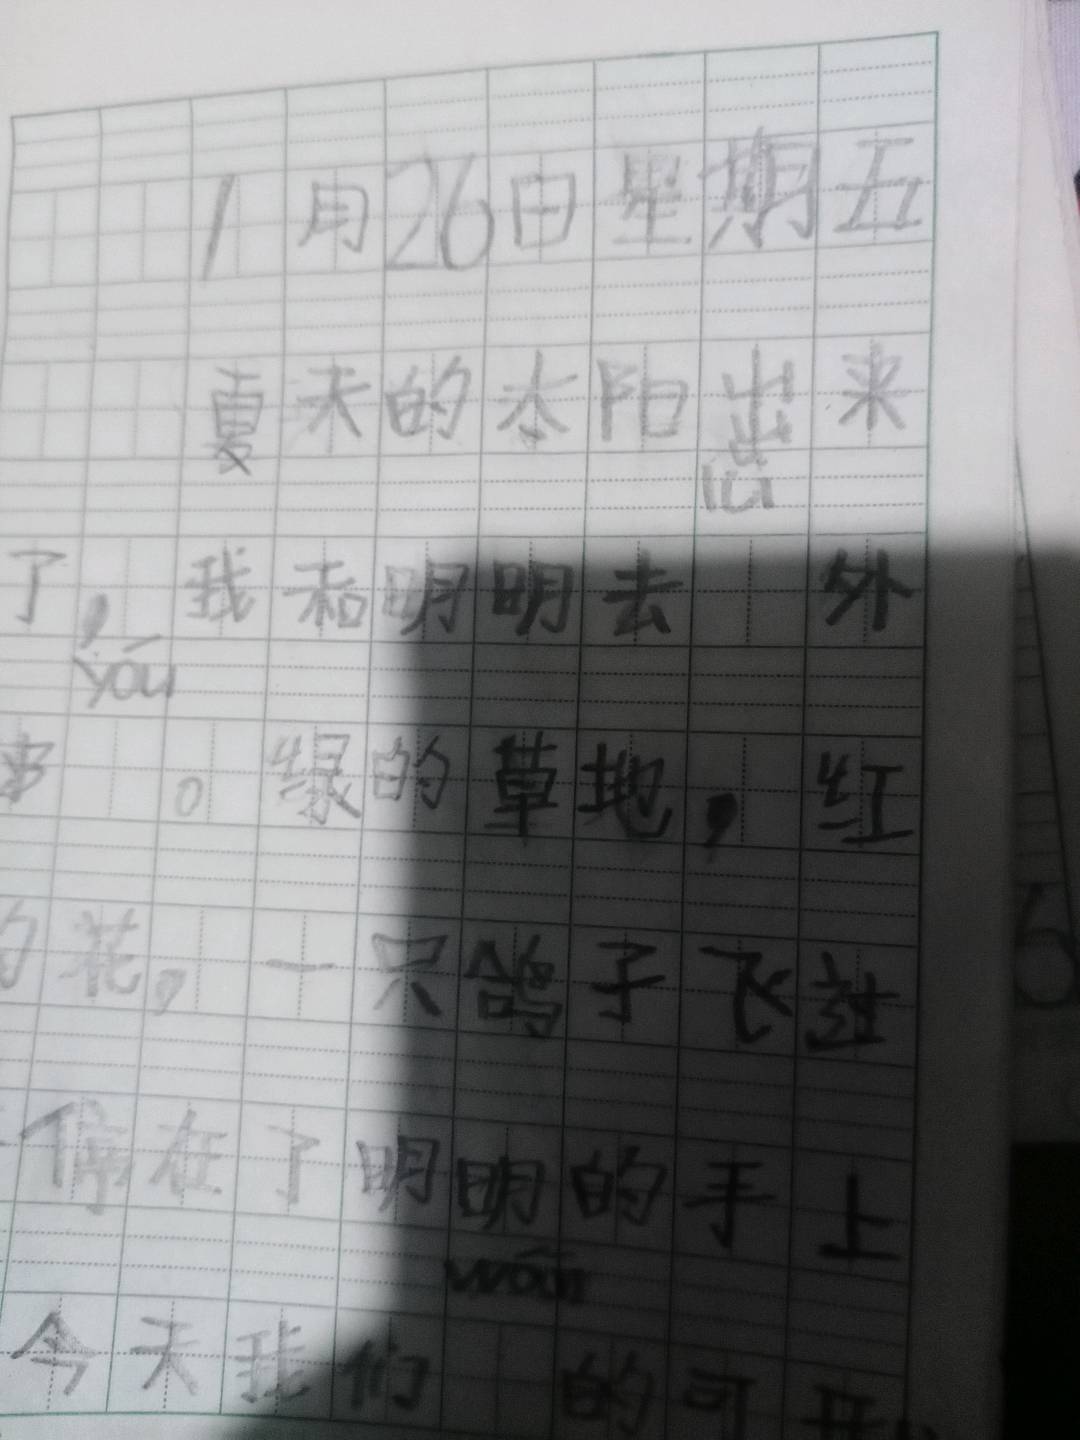 1月26日星期五
夏天的太阳出来
了，我和明明去 外
yóu
。绿的草地，红
的花，一只鸽子飞过
停在了明明的手上
今天我们 的可